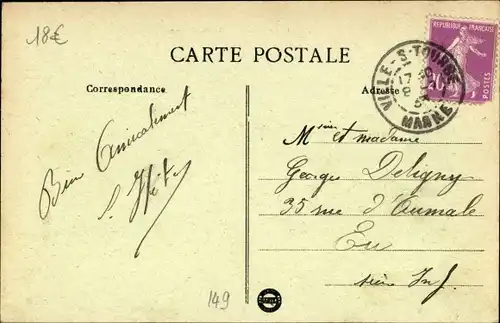 18€
CARTE POSTALE
Correspondance
Adresse
REPUBLIQUE FRANÇAISE
POSTES
VILLE-S-TOURBE
MARNE
Bien Amicalement
Msieur et madame
Georges Deligny
35 rue d'Aumale
Eu
Seine Inf.
149